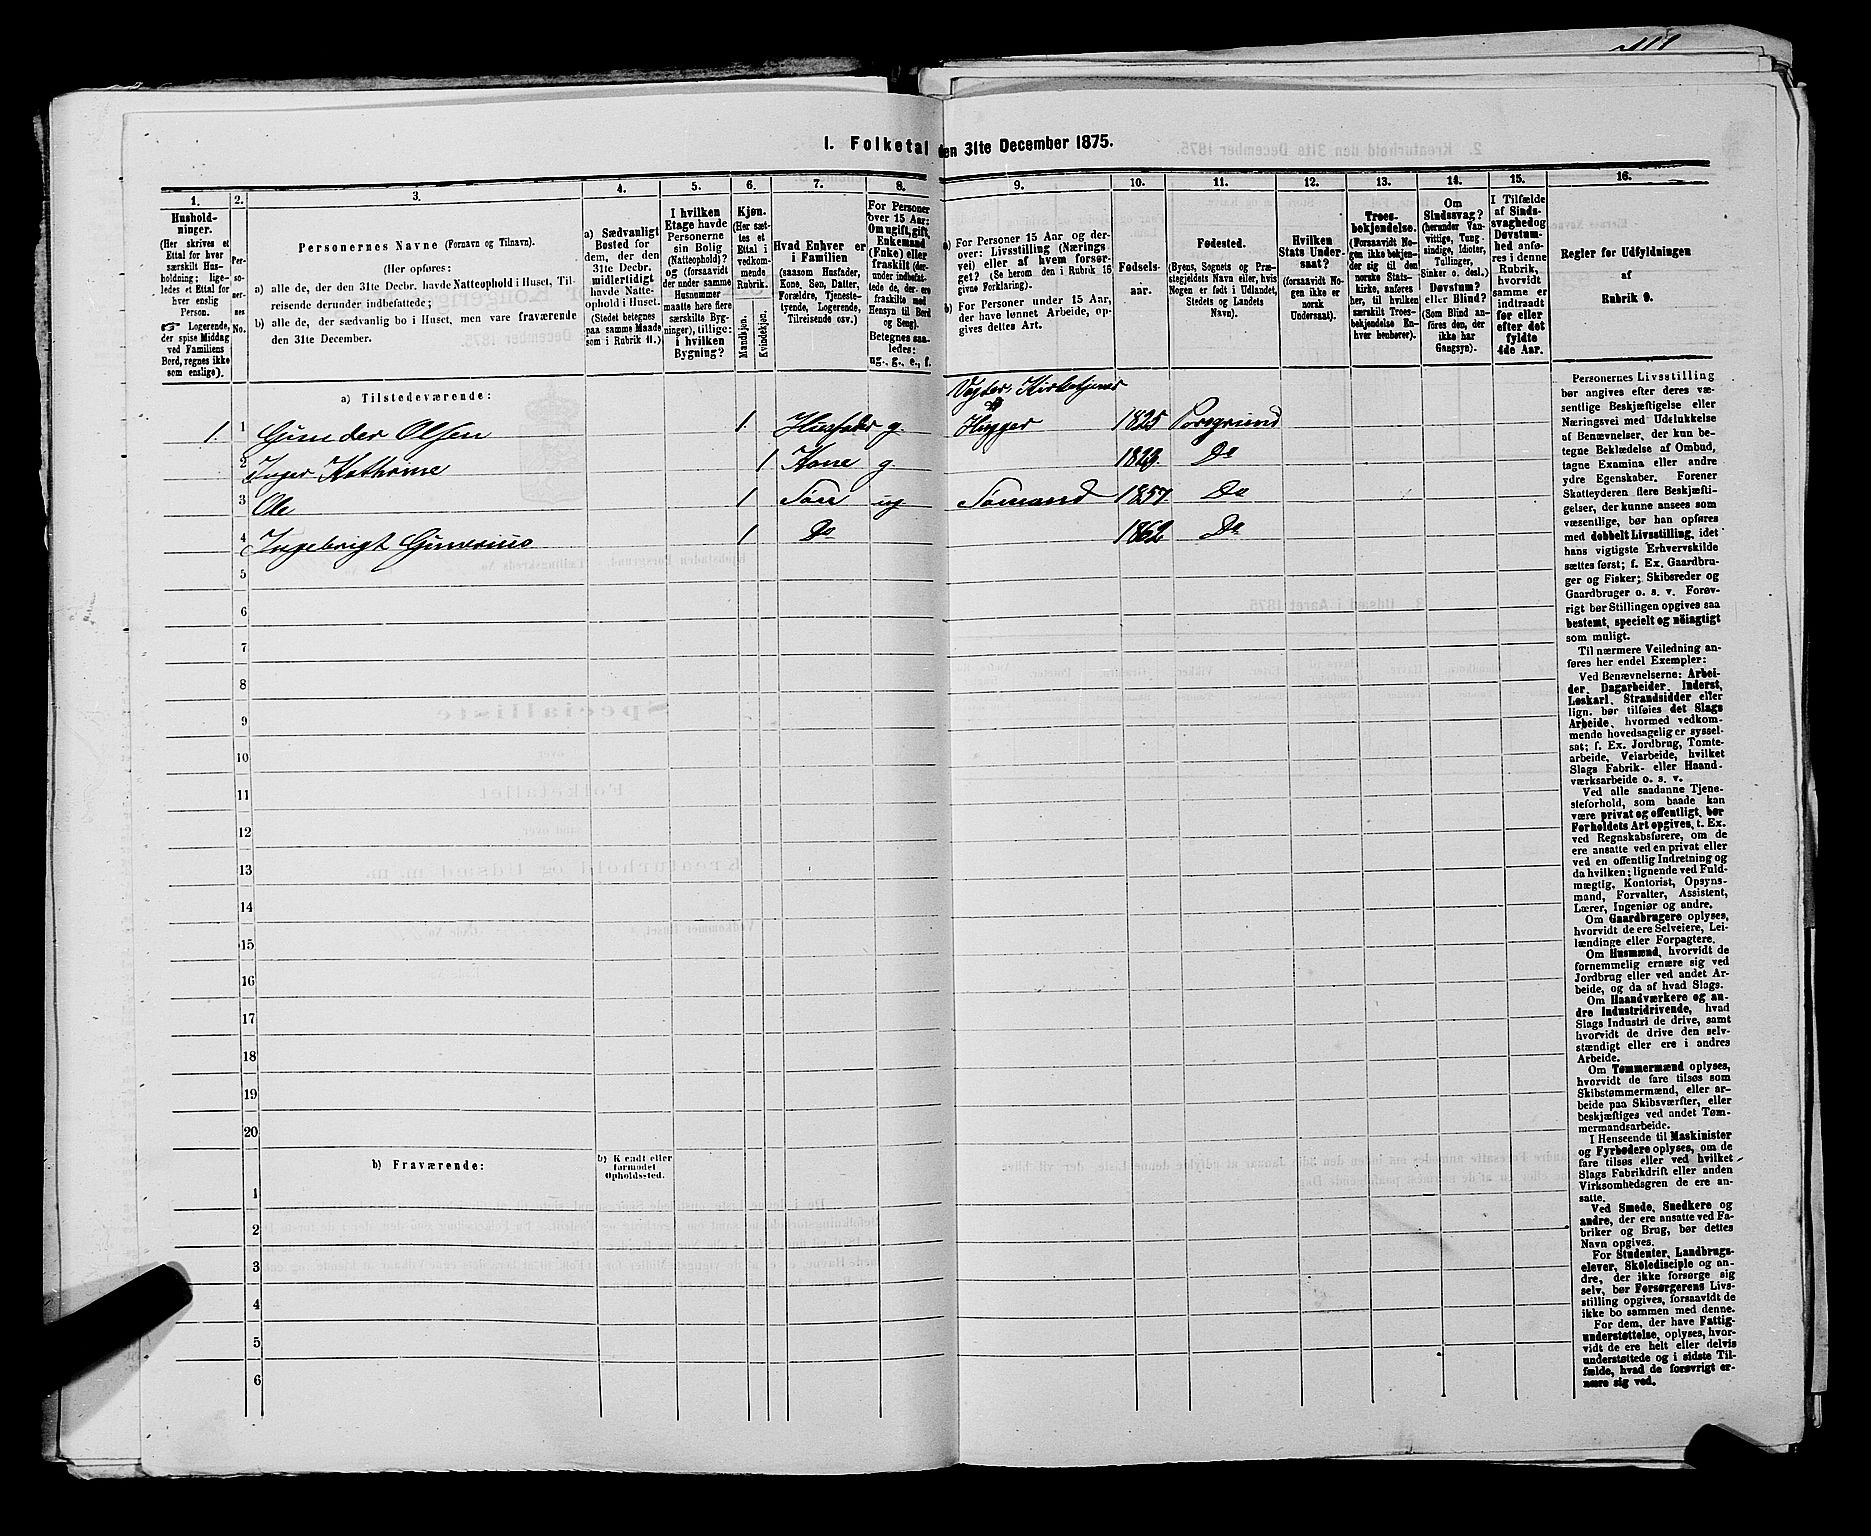 I. Folketal den 31te December 1875.
1.
2.
3.
4.
5.
6.
7.
8.
9.
10.
11.
12.
13.
14.
15.
16.
Hushold-
ninger.
(Her skrives et
Ettal for hver
særskilt Hus-
holdning; lige-
ledes et Ettal for
hver enslig
Person.
☞ Logerende,
der spise Middag
ved Familiens
Bord, regnes ikke
som enslige).
Per-
so-
ner-
nes
No.
Personernes Navne (Fornavn og Tilnavn).
(Her opføres:
a) alle de, der den 31te Decbr. havde Natteophold i Huset, Til-
reisende derunder indbefattede;
b) alle de, der sædvanlig bo i Huset, men vare fraværende
den 31te December.
a) Sædvanligt
Bosted for
dem, der den
31te Decbr.
midlertidigt
havde Natte-
ophold i Huset.
(Stedet betegnes
paa samme Maade
som i Rubrik 11.)
I hvilken
Etage havde
Personerne
sin Bolig
(Natteophold)?
og (forsaavidt
der under samme
Husnummer
maatte høre flere
særskilte Byg-
ninger), tillige:
i hvilken
Bygning?
Kjøn.
(Her sæt-
tes et
Ettal i
vedkom-
mende
Rubrik.
Mandkjøn.
Kvindekjøn.
Hvad Enhver er
i Familien
(saasom Husfader,
Kone, Søn, Datter,
Forældre, Tjeneste-
tyende, Logerende,
Tilreisende osv.)
For Personer
over 15 Aar:
Om ugift, gift,
Enkemand
(Enke) eller
fraskilt (der-
under indbefat-
tede de, der ere
fraskilte med
Hensyn til Bord
og Seng).
Betegnes saa-
ledes:
ug., g., e., f.
a) For Personer 15 Aar og der-
over: Livsstilling (Nærings-
vei) eller af hvem forsør-
get? (Se herom den i Rubrik 16
givne Forklaring).
b) For Personer under 15 Aar,
der have lønnet Arbeide, op-
gives dettes Art.
Fødsels-
aar.
Fødested.
(Byens, Sognets og Præ-
stegjeldets Navn eller, hvis
Nogen er født i Udlandet,
Stedets og Landets
Navn).
Hvilken
Stats Under-
saat?
(forsaavidt No-
gen ikke er
norsk
Undersaat).
Troes-
bekjendelse.
(Forsaavidt No-
gen ikke bekjen-
der sig til den
norske Stats-
kirke, anføres
her, til hvilken
særskilt Troes-
bekjendelse En-
hver henhører).
Om
Sindssvag?
(herunder Van-
vittige, Tung-
sindige, Idioter,
Tullinger,
Sinker o. desl.)
Døvstum?
eller Blind?
(Som Blind an-
føres den, der
ikke har
Gangsyn).
I Tilfælde
af Sinds-
svaghed og
Døvstum-
hed anfø-
res i denne
Rubrik,
hvorvidt
samme er
indtraadt
før eller
efter det
fyldte
4de Aar.
Regler for Udfyldningen
af
Rubrik 9.
a) Tilstedeværende:
Vægter, Kirketjener
1. 1 Gunder Olsen 1 Husfader g. Hugger 1825 Porsgrund
2 Inger Kathrine 1 Kone g. Do
3 Ole 1 Søn ug Sømand 1857. Do
4 Ingebrigt Gunerius 1 Do 1862 Do
5
6
7
8
9
10
11
12
13
14
15
16
17
18
19
20
b) Fraværende:
b) Kjendt eller
formodet
Opholdssted.
1
2
3
4
5
6
Personernes Livsstilling
bør angives efter deres væ-
sentlige Beskjæftigelse eller
Næringsvei med Udelukkelse
af Benævnelser, der kun be-
tegne Beklædelse af Ombud,
tagne Examina eller andre
ydre Egenskaber. Forener
Skatteyderen flere Beskjæfti-
gelser, der kunne ansees som
væsentlige, bør han opføres
med dobbelt Livsstilling, idet
hans vigtigste Erhvervskilde
sættes først; f. Ex. Gaardbru-
ger og Fisker; Skibsreder og
Gaardbruger o. s. v. Forøv-
rigt bør Stillingen opgives saa
bestemt, specielt og nöiagtigt
som muligt.
Til nærmere Veiledning an-
føres her endel Exempler:
Ved Benævnelserne: Arbei-
der, Dagarbeider, Inderst,
Løskarl, Strandsidder eller
lign. bør tilføies det Slags
Arbeide, hvormed vedkom-
mende hovedsagelig er syssel-
sat; f. Ex. Jordbrug, Tomte-
arbeide, Veiarbeide, hvilket
Slags Fabrik- eller Haand-
værksarbeide o. s. v.
Ved alle saadanne Tjene-
steforhold, som baade kan
være privat og offentligt, bør
Forholdets Art opgives, f. Ex.
ved Regnskabsførere, om de
ere ansatte ved en privat eller
ved en offentlig Indretning og
da hvilken; lignende ved Fuld-
mægtig, Kontorist, Opsyns-
mand, Forvalter, Assistent,
Lærer, Ingeniør og andre.
Om Gaardbrugere oplyses,
hvorvidt de ere Selveiere, Lei-
lændinge eller Forpagtere.
Om Husmænd, hvorvidt de
fornemmelig ernære sig ved
Jordbrug eller ved andet Ar-
beide, og da af hvad Slags.
Om Haandværkere og an-
dre Industridrivende, hvad
Slags Industri de drive, samt
hvorvidt de drive den selv-
stændigt eller ere i andres
Arbeide.
Om Tømmermænd oplyses,
hvorvidt de fare tilsøs som
Skibstømmermænd, eller ar-
beide paa Skibsværfter, eller
beskjæftiges ved andet Tøm-
mermandsarbeide.
I Henseende til Maskinister
og Fyrbødere oplyses, om de
fare tilsøs eller ved hvilket
Slags Fabrikdrift eller anden
Virksomhedsgren de ere an-
satte.
Ved Smede, Snedkere og
andre, der ere ansatte ved Fa-
briker og Brug, bør dettes
Navn opgives.
For Studenter, Landbrugs-
elever, Skoledisciple og an-
dre, der ikke forsørge sig
selv, bør Forsørgerens Livs-
stilling opgives, forsaavidt de
ikke bo sammen med denne.
For dem, der have Fattig-
understøttelse, oplyses, hvor-
vidt de ere helt eller delvis
understøttede og i sidste Til-
fælde, hvad de forøvrigt er-
nære sig ved.